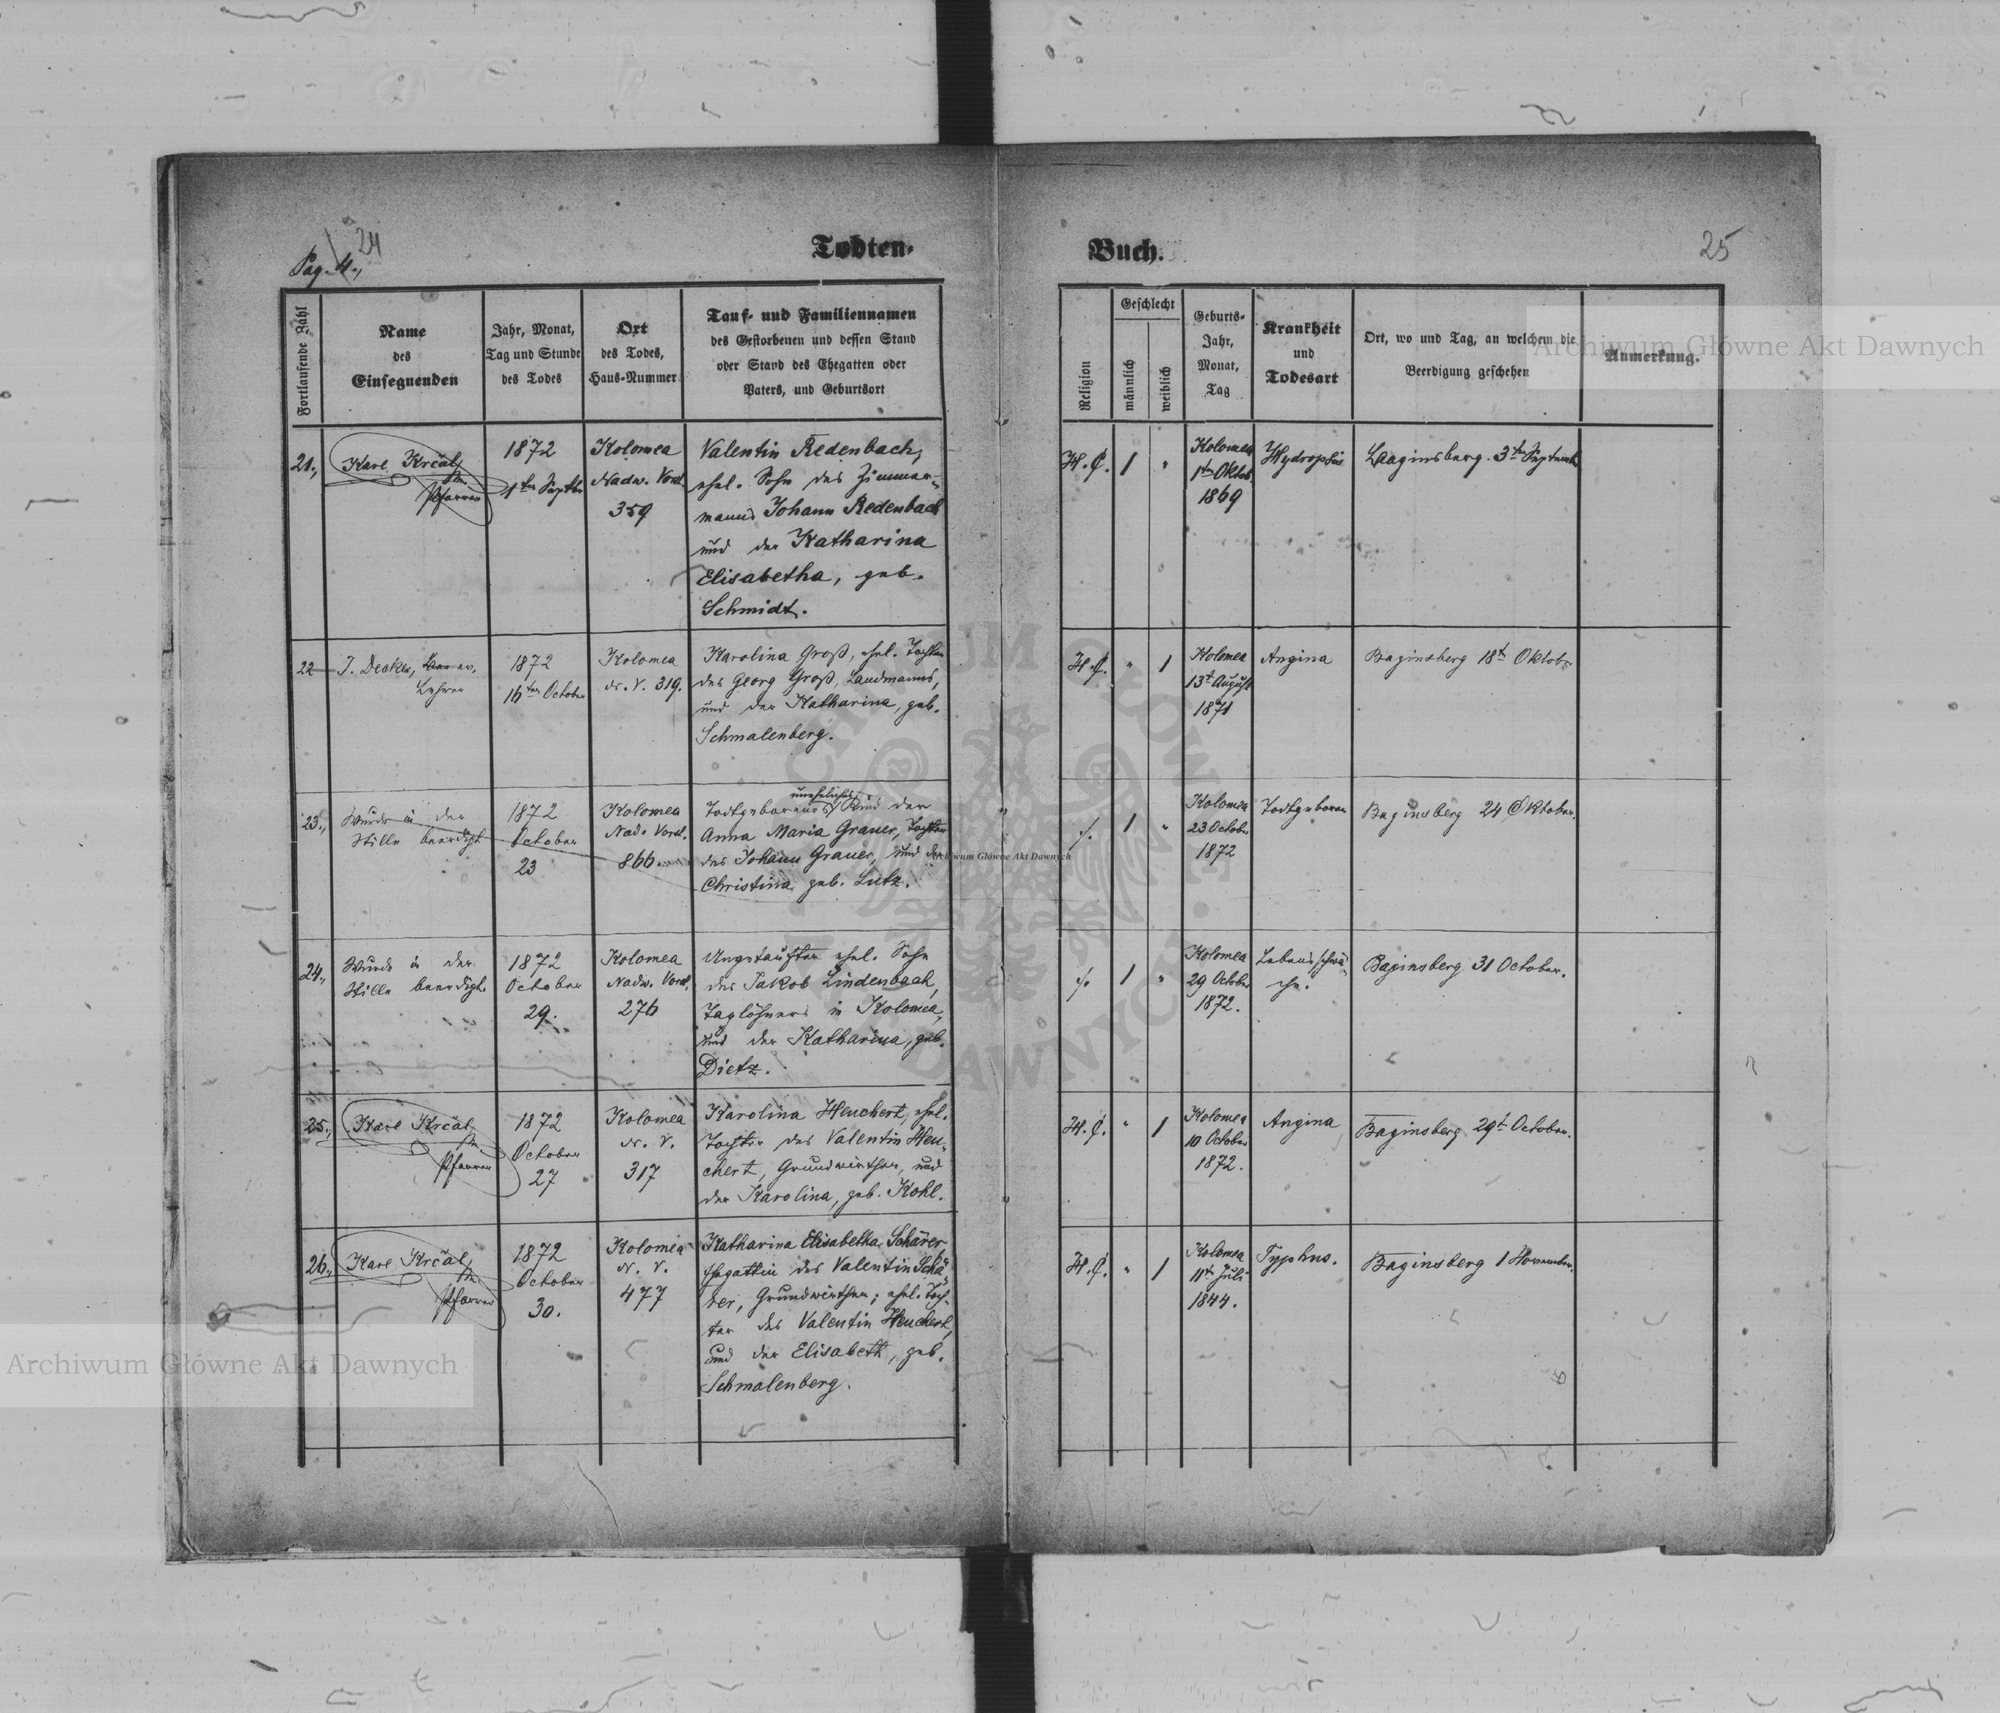 Pag. 4., 24
Todten-
Buch.
25
Fortlaufende Zahl
Name
des
Einsegnenden
Jahr, Monat,
Tag und Stunde
des Todes
Ort
des Todes,
Haus-Nummer
Tauf- und Familiennamen
des Gestorbenen und dessen Stand
oder Stand des Ehegatten oder
Vaters, und Geburtsort
Religion
Geschlecht
männlich
weiblich
Geburts-
Jahr,
Monat,
Tag
Krankheit
und
Todesart
Ort, wo und Tag, an welchem die
Beerdigung geschehen
Anmerkung.
21.,
Karl Krčal,
Pfarrer
1872
1ten Septbr
Kolomea
Nadw. Vorst.
359
Valentin Redenbach,
ehel. Sohn des Zimmer-
manns Johann Redenbach
und der Katharina
Elisabetha, geb.
Schmidt.
H. C.
1
"
Kolomea
1ten Oktob.
1869
Hydrophis
Baginsberg. 3ten Septemb.
22
J. Decker, ev.
Lehrer
1872
16ten October
Kolomea
N. V. 319.
Karolina Groß, ehel. Tochter
des Georg Groß, Landmanns,
und der Katharina, geb.
Schmalenberg.
H. C.
"
1
Kolomea
13t August
1871
Angina
Baginsberg 18t Oktobr
23.,
Wurde in der
Stille beerdigt
1872
October
23
Kolomea
Nadw. Vorst.
866.
unehelliches
Todtgeborenes Kind der
Anna Maria Grauer, Tochter
des Johann Grauer, und der
Christina geb. Lutz.
1
"
Kolomea
23 October
1872
Todtgeboren
Baginsberg 24 Oktober.
24.,
Wurde in der
Stille beerdigt.
1872
October
29.
Kolomea
Nadw. Vorst.
276
Ungetaufter ehel. Sohn
des Jakob Lindenbach,
Taglöhners in Kolomea,
und der Katharina, geb.
Dietz.
1
"
Kolomea
29 October
1872.
Lebensschwä-
che.
Baginsberg 31 October.
25.,
Karl Krčal,
Pfarrer
1872
October
27
Kolomea
N. V.
317
Karolina Heuchert, ehel.
Tochter des Valentin Heu-
chert, Grundwirthen, und
der Karolina, geb. Kohl.
H. C.
"
1
Kolomea
10 October
1872.
Angina
Baginsberg 29t October.
26.,
Karl Krčal,
Pfarrer
1872
October
30.
Kolomea
N. V.
477
Katharina Elisabetha Schärer
Ehegattin des Valentin Schä-
rer, Grundwirthen; ehel. Toch-
ter des Valentin Heuchert,
und der Elisabeth, geb.
Schmalenberg.
H. C.
"
1
Kolomea
11ten Juli
1844.
Typhus.
Baginsberg 1 November.
Archiwum Główne Akt Dawnych
Archiwum Główne Akt Dawnych
Archiwum Główne Akt Dawnych